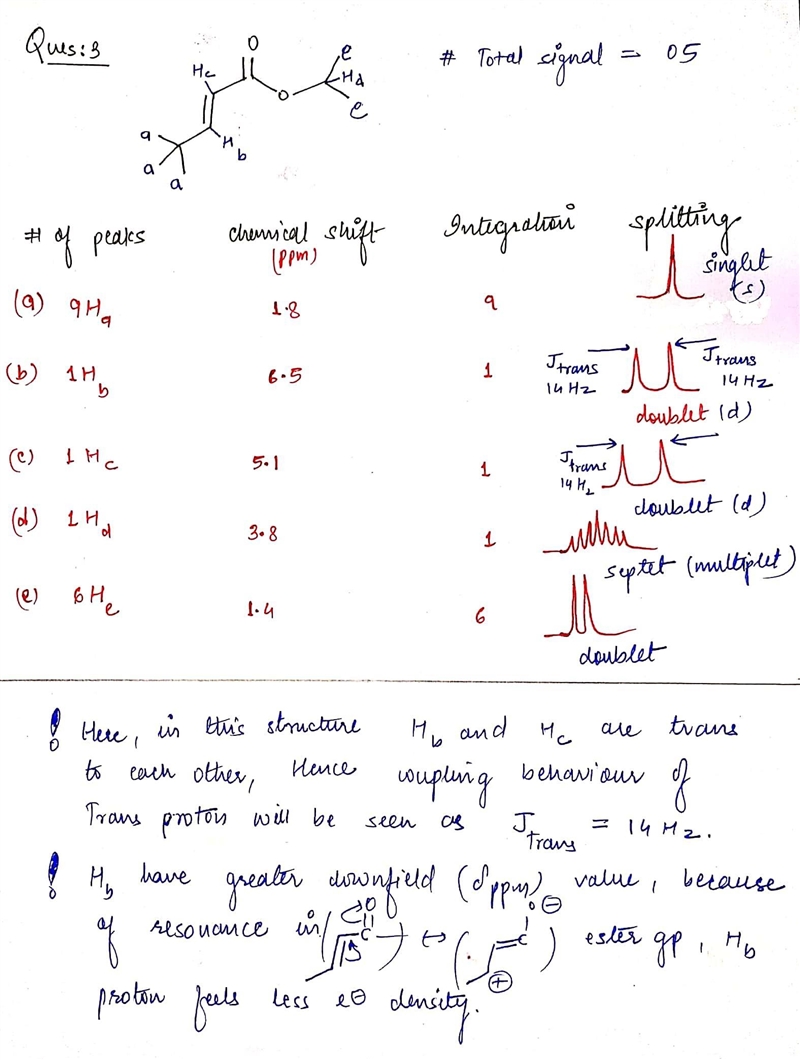 Ques:3
# Total signal = 05
O
Hc
O
e
Hd
e
Hb
a
a
a
# of peaks chemical shift (ppm) Integration splitting
(a) 9Ha 1.8 9 singlet (s)
(b) 1Hb 6.5 1 Jtrans 14 Hz Jtrans 14 Hz
doublet (d)
(c) 1Hc 5.1 1 Jtrans 14 Hz
doublet (d)
(d) 1Hd 3.8 1
septet (multiplet)
(e) 6He 1.4 6
doublet
! Here, in this structure Hb and Hc are trans
to each other, Hence coupling behaviour of
Trans proton will be seen as Jtrans = 14 Hz.
! Hb have greater downfield (δppm) value, because
of resonance in ( O C ) ↔ ( O ⊖ C ⊕ ) ester gp, Hb
proton feels less e⊖ density.